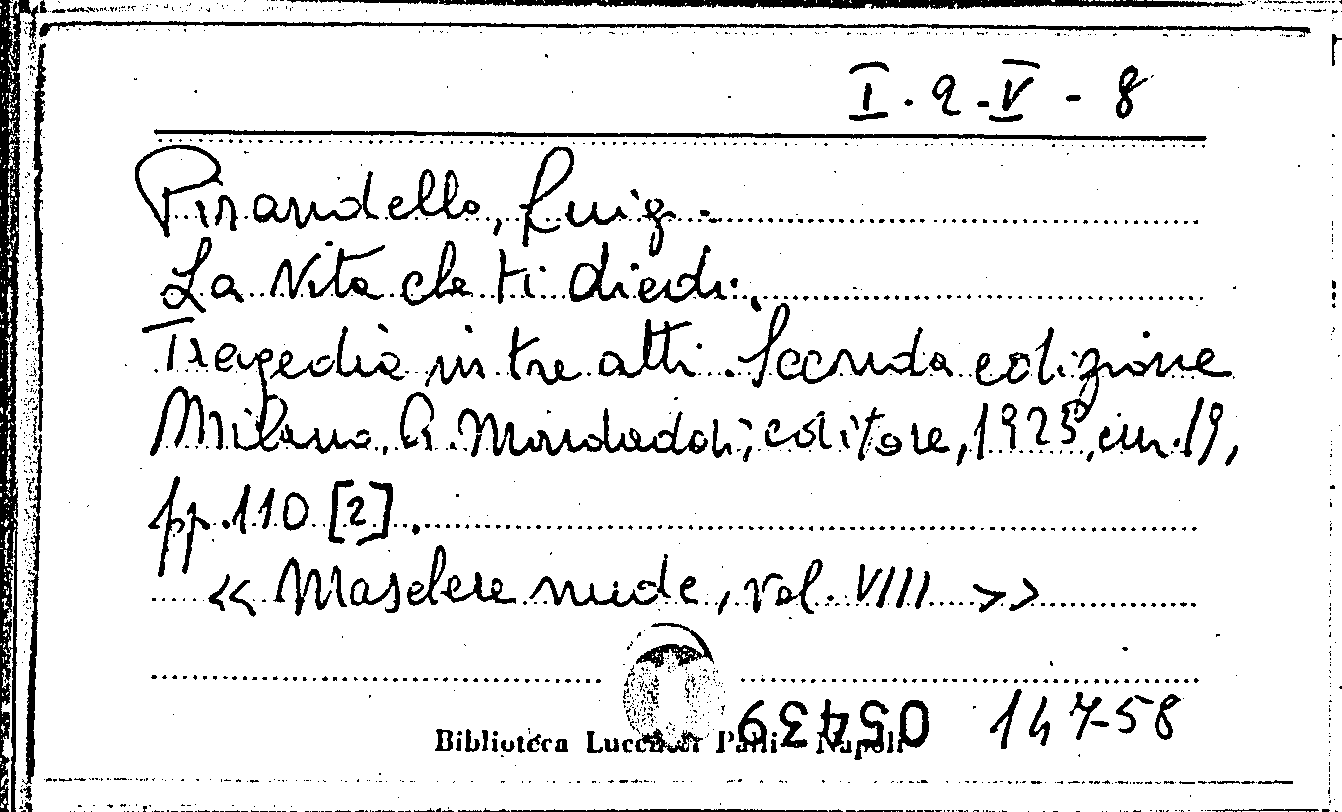 I. 2 - V - 8
Pirandello, Luigi.
La vita che ti diedi.
Tragedia in tre atti. Seconda edizione
Milano, A. Mondadori, editore, 1925, cm. 19,
pp. 110 [2].
<< Maschere nude, vol. VIII >>
05439
14758
Biblioteca Lucchesi Palli - Napoli